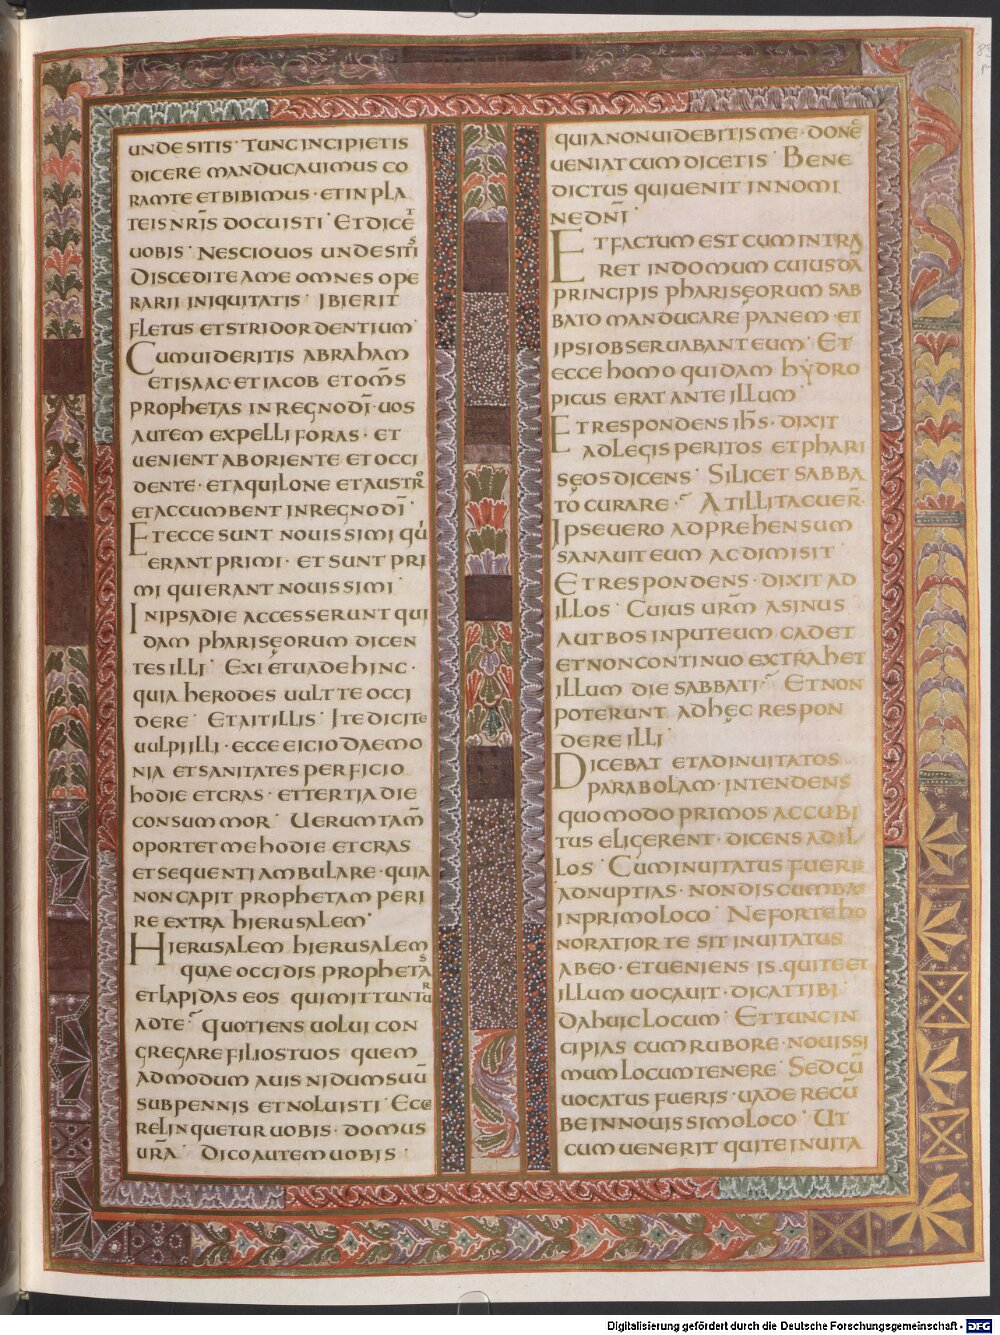 UNDE SITIS · TUNC INCIPIETIS
DICERE MANDUCAUIMUS CO
RAM TE ET BIBIMUS · ET IN PLA
TEIS NR̄IS DOCUISTI · ET DICET
UOBIS · NESCIO UOS UNDE SITIS
DISCEDITE A ME OMNES OPE
RARII INIQUITATIS · IBI ERIT
FLETUS ET STRIDOR DENTIUM ·
CUM UIDERITIS ABRAHAM
ET ISAAC · ET IACOB ET OM̄S
PROPHETAS IN REGNO DĪ · UOS
AUTEM EXPELLI FORAS · ET
UENIENT AB ORIENTE ET OCCI
DENTE · ET AQUILONE ET AUSTRO
ET ACCUMBENT IN REGNO DĪ ·
ET ECCE SUNT NOUISSIMI QUI
ERANT PRIMI · ET SUNT PRI
MI QUI ERANT NOUISSIMI ·
IN IPSA DIE ACCESSERUNT QUI
DAM PHARISĘORUM DICEN
TES ILLI · EXI ET UADE HINC ·
QUIA HERODES UULT TE OCCI
DERE · ET AIT ILLIS · ITE DICITE
UULPI ILLI · ECCE EICIO DAEMO
NIA ET SANITATES PERFICIO
HODIE ET CRAS · ET TERTIA DIE
CONSUMMOR · UERUMTAM̄
OPORTET ME HODIE ET CRAS
ET SEQUENTI AMBULARE · QUIA
NON CAPIT PROPHETAM PERI
RE EXTRA HIERUSALEM ·
HIERUSALEM HIERUSALEM
QUAE OCCIDIS PROPHETAS
ET LAPIDAS EOS QUI MITTUNTUR
AD TE · QUOTIENS UOLUI CON
GREGARE FILIOS TUOS QUEM
ADMODUM AUIS NIDUM SUŪ
SUB PENNIS ET NOLUISTI · ECCE
RELINQUETUR UOBIS · DOMUS
UR̄A · DICO AUTEM UOBIS ·
QUIA NON UIDEBITIS ME · DONEC
UENIAT CUM DICETIS · BENE
DICTUS QUI UENIT IN NOMI
NE DN̄I ·
ET FACTUM EST CUM INTRA
RET IN DOMUM CUIUSDĀ
PRINCIPIS PHARISĘORUM SAB
BATO MANDUCARE PANEM · ET
IPSI OBSERUABANT EUM · ET
ECCE HOMO QUIDAM HYDRO
PICUS ERAT ANTE ILLUM ·
ET RESPONDENS IH̄S · DIXIT
AD LEGISPERITOS ET PHARI
SĘOS DICENS · SI LICET SABBA
TO CURARE · AT ILLI TACUER̄ ·
IPSE UERO ADPREHENSUM
SANAUIT EUM AC DIMISIT ·
ET RESPONDENS · DIXIT AD
ILLOS · CUIUS UR̄M ASINUS
AUT BOS IN PUTEUM CADET
ET NON CONTINUO EXTRAHET
ILLUM DIE SABBATI · ET NON
POTERUNT AD HĘC RESPON
DERE ILLI ·
DICEBAT ET AD INUITATOS
PARABOLAM · INTENDENS
QUOMODO PRIMOS ACCUBI
TUS ELIGERENT · DICENS AD IL
LOS · CUM INUITATUS FUERIS
AD NUPTIAS · NON DISCUMBAS
IN PRIMO LOCO · NE FORTE HO
NORATIOR TE SIT INUITATUS
AB EO · ET UENIENS IS QUI TE ET
ILLUM UOCAUIT · DICAT TIBI
DA HUIC LOCUM · ET TUNC IN
CIPIAS CUM RUBORE · NOUISSI
MUM LOCUM TENERE · SED CŪ
UOCATUS FUERIS · UADE RECŪ
BE IN NOUISSIMO LOCO · UT
CUM UENERIT QUI TE INUITA
Digitalisierung gefördert durch die Deutsche Forschungsgemeinschaft - DFG